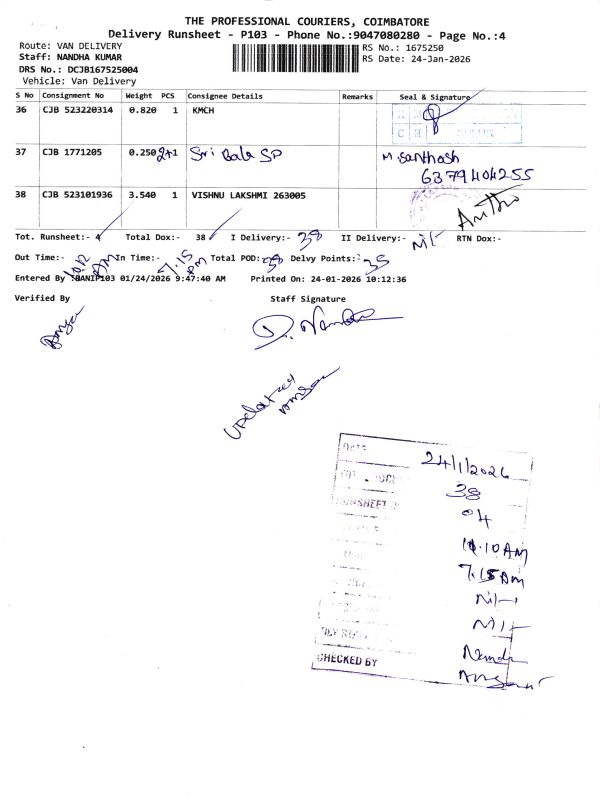 THE PROFESSIONAL COURIERS, COIMBATORE
Delivery Runsheet - P103 - Phone No.:9047080280 - Page No.:4
Route: VAN DELIVERY
RS No.: 1675250
Staff: NANDHA KUMAR
RS Date: 24-Jan-2026
DRS No.: DCJB167525004
Vehicle: Van Delivery
S No Consignment No Weight PCS Consignee Details Remarks Seal & Signature
36 CJB 523220314 0.820 1 KMCH
37 CJB 1771205 0.250 1 Sri Bala SP M Santhosh
6379404255
38 CJB 523101936 3.540 1 VISHNU LAKSHMI 263005
Tot. Runsheet:- 4 Total Dox:- 38 I Delivery:- 38 II Delivery:- Nil RTN Dox:-
Out Time:- 10.12 AM In Time:- 7.15 PM Total POD:- 38 Delvy Points:- 35
Entered By :BANIP103 01/24/2026 9:47:40 AM Printed On: 24-01-2026 10:12:36
Verified By Staff Signature
Updated
DATE 24/1/2026
38
RUNSHEET 04
10.10 AM
7.15 AM
Nil
Nil
Nanda
CHECKED BY